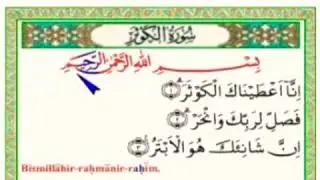 سُورَةُ الْكَوْثَرِ
بِسْمِ اللهِ الرَّحْمٰنِ الرَّحِيمِ
اِنَّٓا اَعْطَيْنَاكَ الْكَوْثَرَ ﴿١﴾
فَصَلِّ لِرَبِّكَ وَانْحَرْ ﴿٢﴾
اِنَّ شَانِئَكَ هُوَ الْاَبْتَرُ ﴿٣﴾
Bismillâhir-raḥmânir-raḥîm.